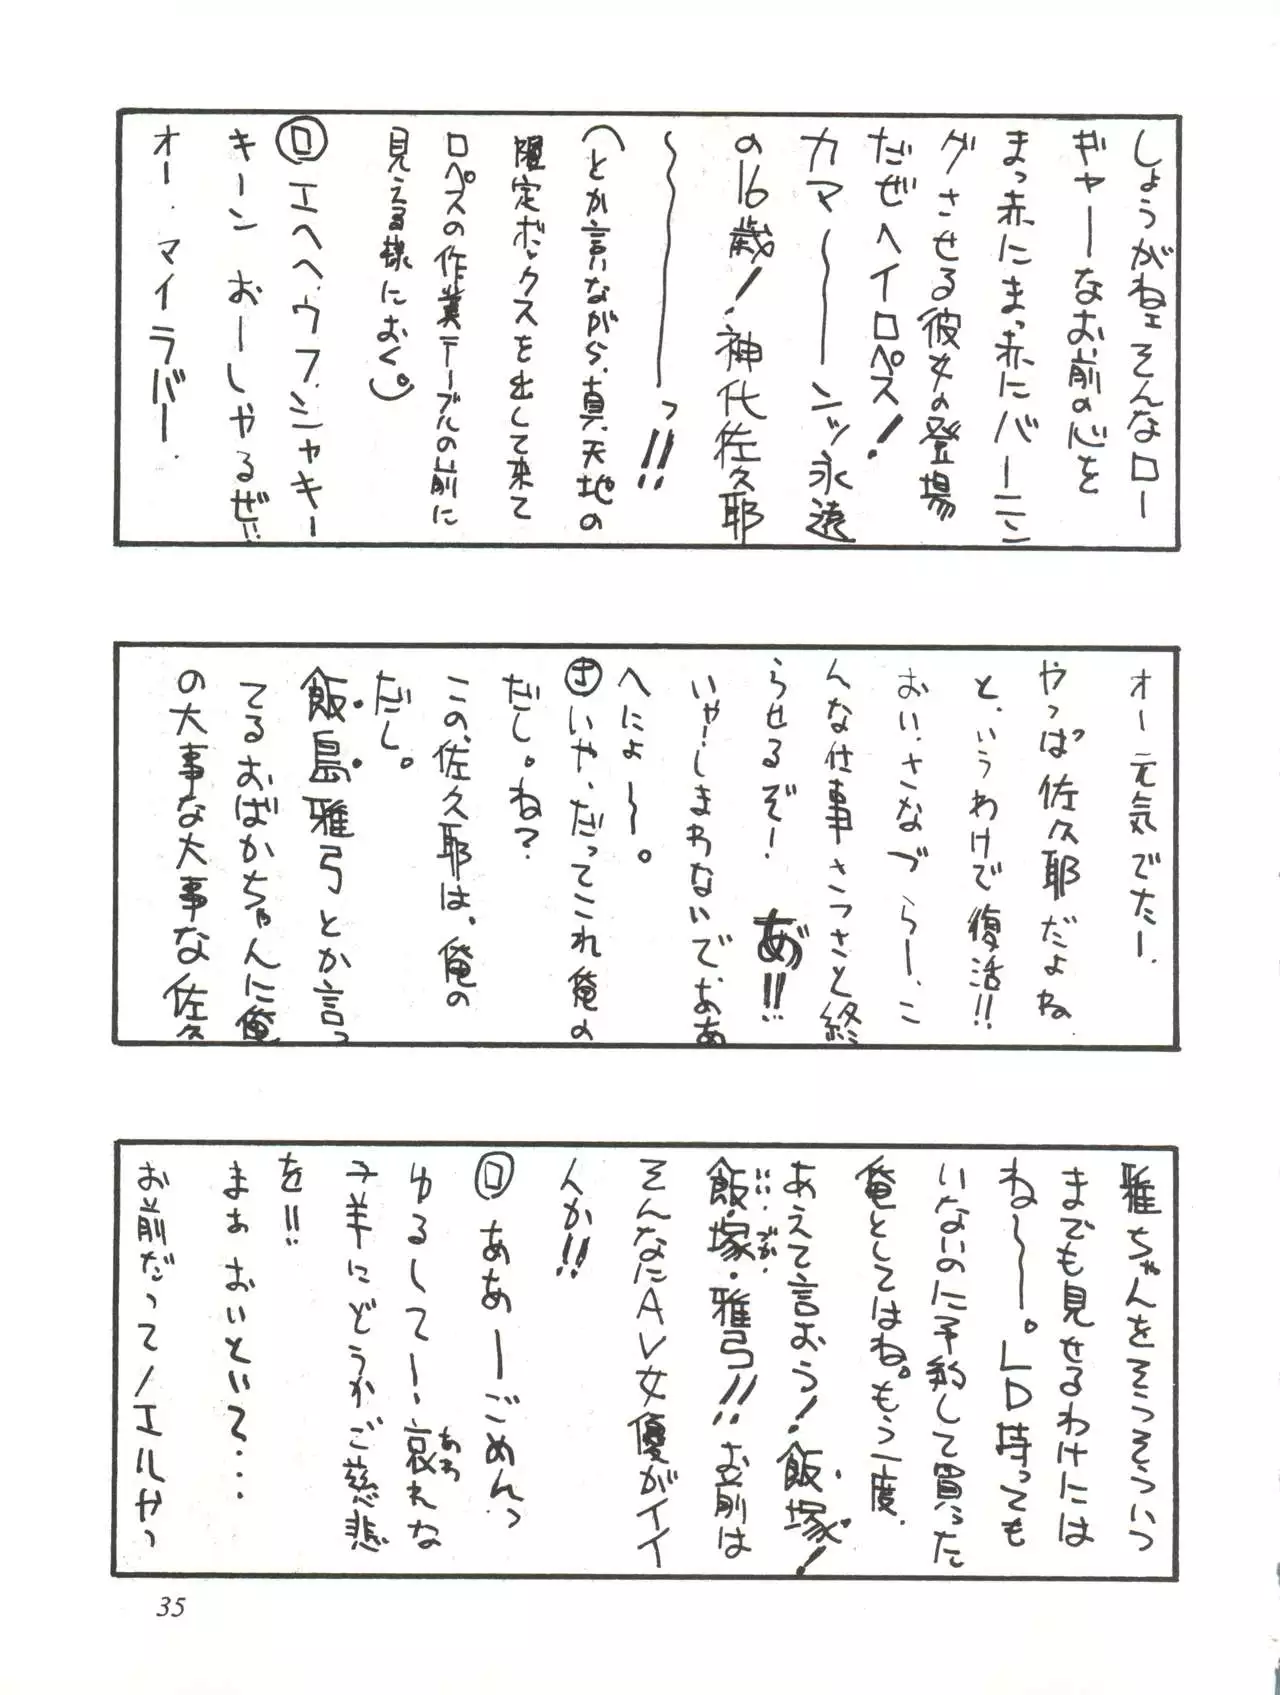 しょうがねェそんなロー
ギャーなお前の心を
まっ赤にまっ赤にバーニン
グさせる彼女の登場
だぜヘイロペス!
カマ〜〜ンッ永遠
の16歳!神代佐久耶
〜〜〜っ!!
(とか言いながら、真.天地の
限定ボックスを出して来て
ロペスの作業テーブルの前に
見える様におく)。
ロ エヘヘ、ウフ、シャキー
キーン おーしゃるぜ!!
オー.マイラバー.
オー元気でたー.
やっぱ佐久耶だよね
と、いうわけで復活!!
おい、さなづらー、こ
んな仕事さっさと終
らせるぞー! あ゛!!
いやーしまわないでああ
へにょ〜。
さ いや、だってこれ俺の
だし。ね?
この、佐久耶は、俺の
だし。
飯島雅弓とか言っ
てるおばかちゃんに俺
の大事な大事な佐久
雅ちゃんをそうそういつ
までも見せるわけには
ね〜〜。LD持っても
いないのに予約して買った
俺としてはね。もう一度.
あえて言おう!飯塚!
いい.づか.
飯・塚・雅弓!!お前は
そんなにAV女優がイイ
んか!!
ロ ああーごめんっ
ゆるしてー、哀れな
あわ
子羊にどうかご慈悲
を!!
まぁおいといて・・・
お前だってノエルやっ
35